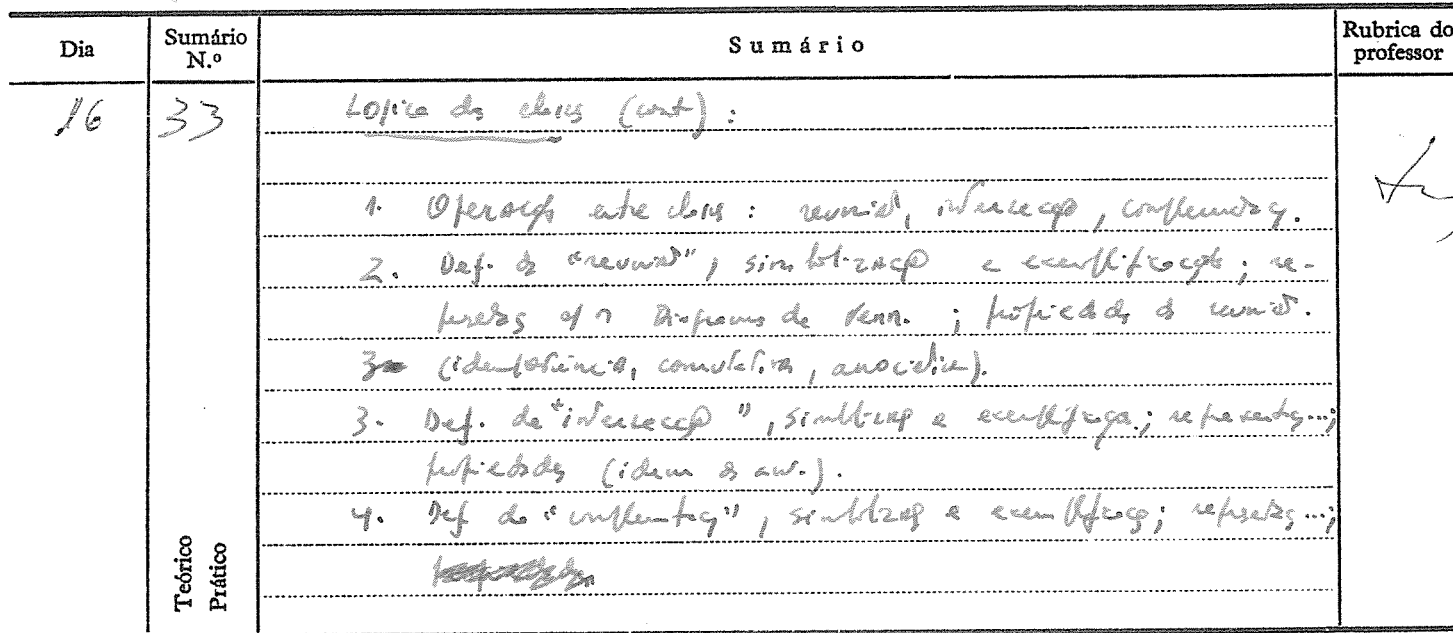 Dia
Sumário N.º
Sumário
Rubrica do professor
16
33
Lógica das classes (cont):
1. Operações entre classes: reunião, intersecção, complementação.
2. Def. de "reunião", simbolização e exemplificação; re-
presentação Diagrama de Venn.; propriedades da reunião.
(idempotência, comutativa, associativa).
3. Def. de "intersecção", simbolização e exemplificação; representação...;
propriedades (idem às ant.).
4. Def de "complementação", simbolização e exemplificação; representação...;
Teórico
Prático